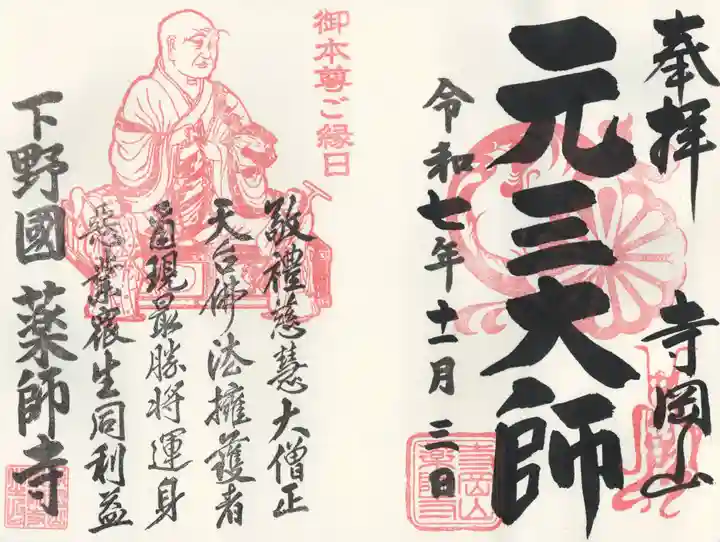 奉拝
寺岡山
元三大師
令和七年十一月三日
寺岡山
薬師寺
御本尊ご縁日
敬禮慈慧大僧正
天台佛法擁護者
示現最勝將運身
惡業衆生同利益
下野國薬師寺